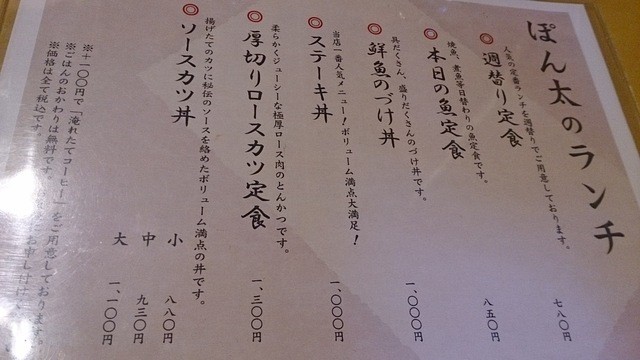 ぽん太のランチ
人気の定番ランチを週替りでご用意しております。
◎週替り定食 七八〇円
焼魚、煮魚等日替わりの魚定食です。
◎本日の魚定食 八五〇円
具だくさん、盛りだくさんのづけ丼です。
◎鮮魚のづけ丼 一、〇〇〇円
当店一番人気メニュー!ボリューム満点大満足!
◎ステーキ丼 一、〇〇〇円
柔らかくジューシーな極厚ロース肉のとんかつです。
◎厚切りロースカツ定食 一、三〇〇円
揚げたてのカツに秘伝のソースを絡めたボリューム満点の丼です。
◎ソースカツ丼
小 八八〇円
中 九三〇円
大 一、一〇〇円
※+一〇〇円で「淹れたてコーヒー」をご用意しております。
※ごはんのおかわりは無料です。
※価格は全て税込です。